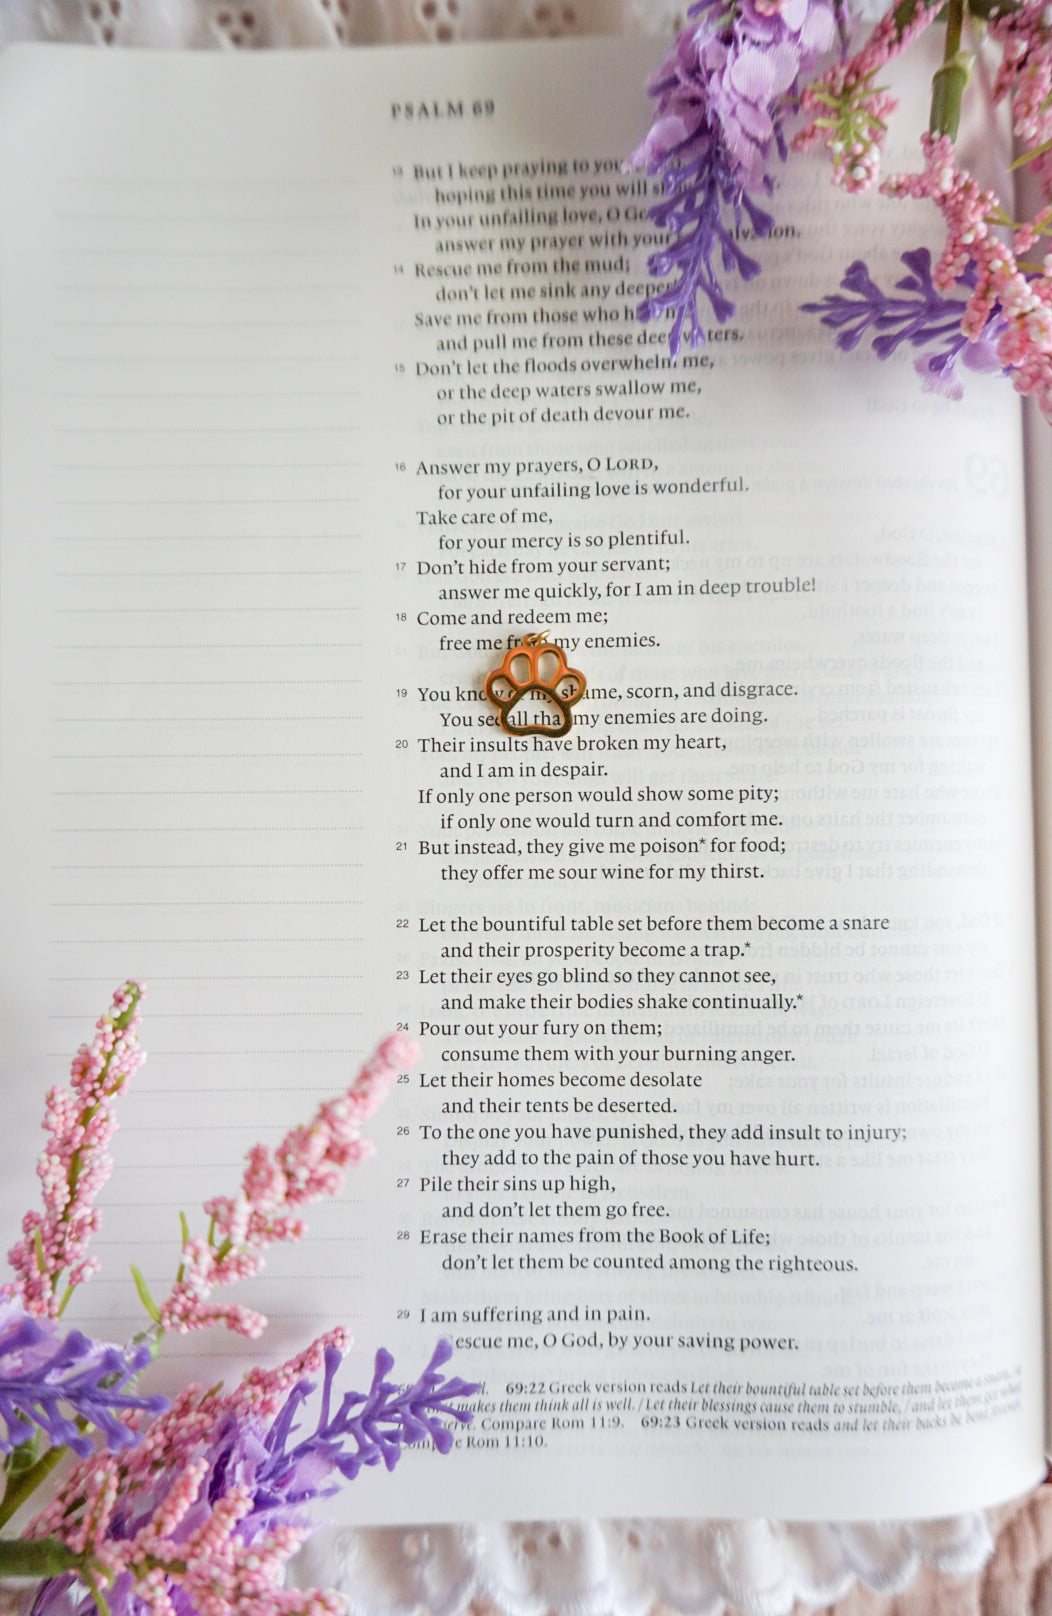 PSALM 69
13 But I keep praying to you
hoping this time you will
In your unfailing love, O
answer my prayer with your
14 Rescue me from the mud;
don't let me sink any deeper
Save me from those who
and pull me from these deep waters.
15 Don't let the floods overwhelm me,
or the deep waters swallow me,
or the pit of death devour me.
16 Answer my prayers, O LORD,
for your unfailing love is wonderful.
Take care of me,
for your mercy is so plentiful.
17 Don't hide from your servant;
answer me quickly, for I am in deep trouble!
18 Come and redeem me;
free me from my enemies.
19 You know of my shame, scorn, and disgrace.
You see all that my enemies are doing.
20 Their insults have broken my heart,
and I am in despair.
If only one person would show some pity;
if only one would turn and comfort me.
21 But instead, they give me poison* for food;
they offer me sour wine for my thirst.
22 Let the bountiful table set before them become a snare
and their prosperity become a trap.*
23 Let their eyes go blind so they cannot see,
and make their bodies shake continually.*
24 Pour out your fury on them;
consume them with your burning anger.
25 Let their homes become desolate
and their tents be deserted.
26 To the one you have punished, they add insult to injury;
they add to the pain of those you have hurt.
27 Pile their sins up high,
and don't let them go free.
28 Erase their names from the Book of Life;
don't let them be counted among the righteous.
29 I am suffering and in pain.
Rescue me, O God, by your saving power.
69:22 Greek version reads Let their bountiful table set before them become a snare, a
makes them think all is well. / Let their blessings cause them to stumble, / and let them get what
Compare Rom 11:9. 69:23 Greek version reads and let their backs be bent forever.
Compare Rom 11:10.